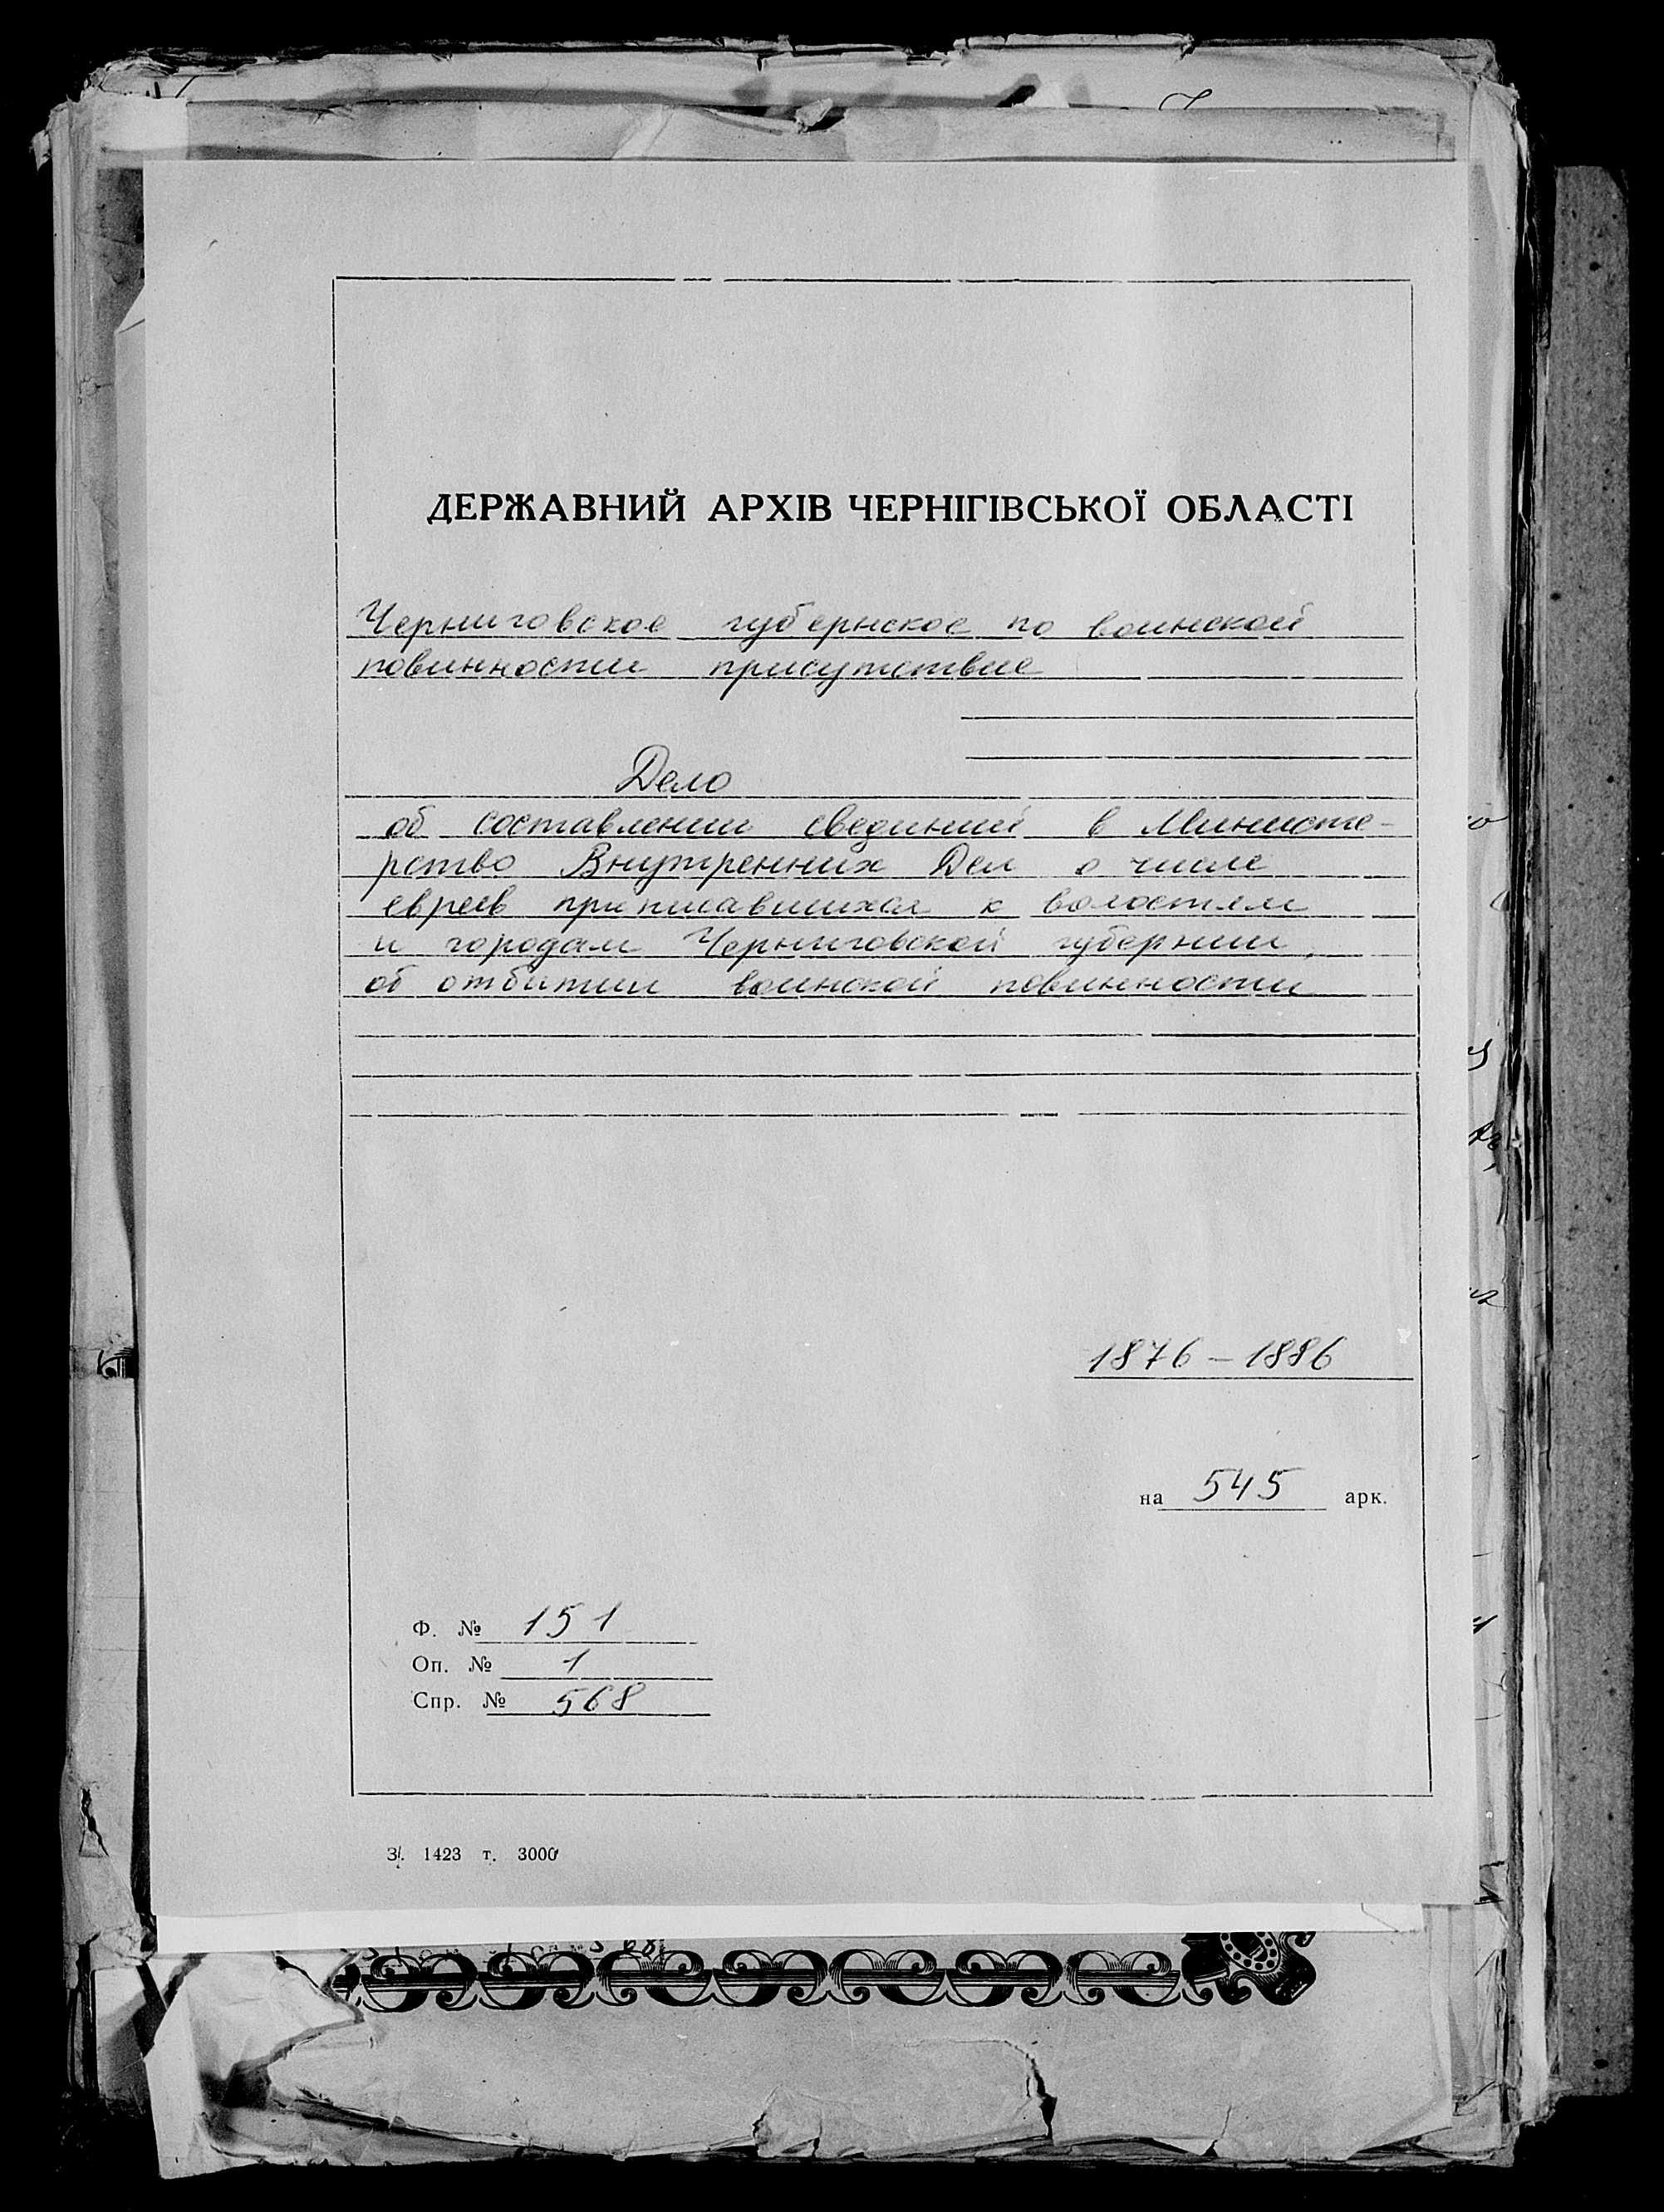 ДЕРЖАВНИЙ АРХІВ ЧЕРНІГІВСЬКОЇ ОБЛАСТІ
Черниговское губернское по воинской
повинности присутствие
Дело
об составлении свединий в Министе-
рство Внутренних Дел о числе
евреев приписавшихся к волостям
и городам Черниговской губернии,
об отбытии воинской повинности
1876 – 1886
на 545 арк.
Ф. № 151
Оп. № 1
Спр. № 568
З. 1423 т. 3000